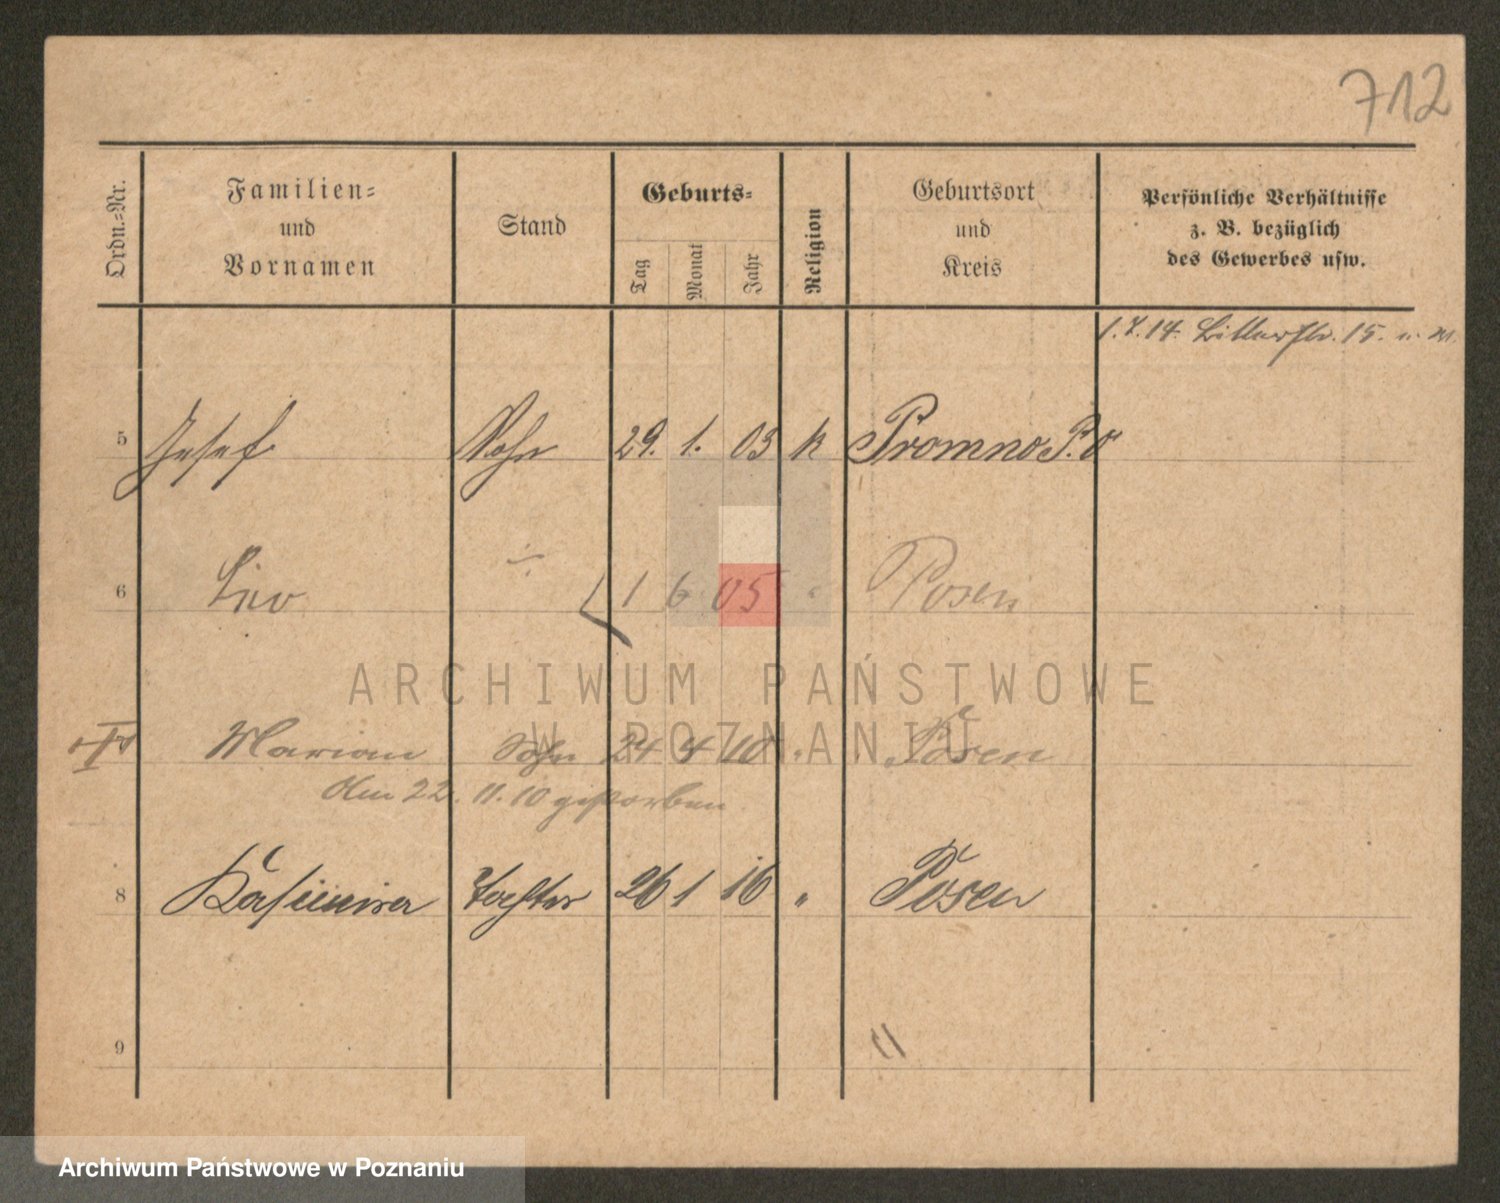 712
Ordn.=Nr.
Familien=
und
Vornamen
Stand
Geburts=
Tag
Monat
Jahr
Religion
Geburtsort
und
Kreis
Persönliche Verhältnisse
z. B. bezüglich
des Gewerbes usw.
1.7.14. 15.
5 Josef Sohn 29. 1. 03 k Promno P. O
6 Leo 1 6 05 " Posen
Marian Sohn 24 4 10 " Posen
Am 22. 11. 10 gestorben
8 Kasimira Tochter 26 1 16 " Posen
9
ARCHIWUM PAŃSTWOWE
W POZNANIU
Archiwum Państwowe w Poznaniu